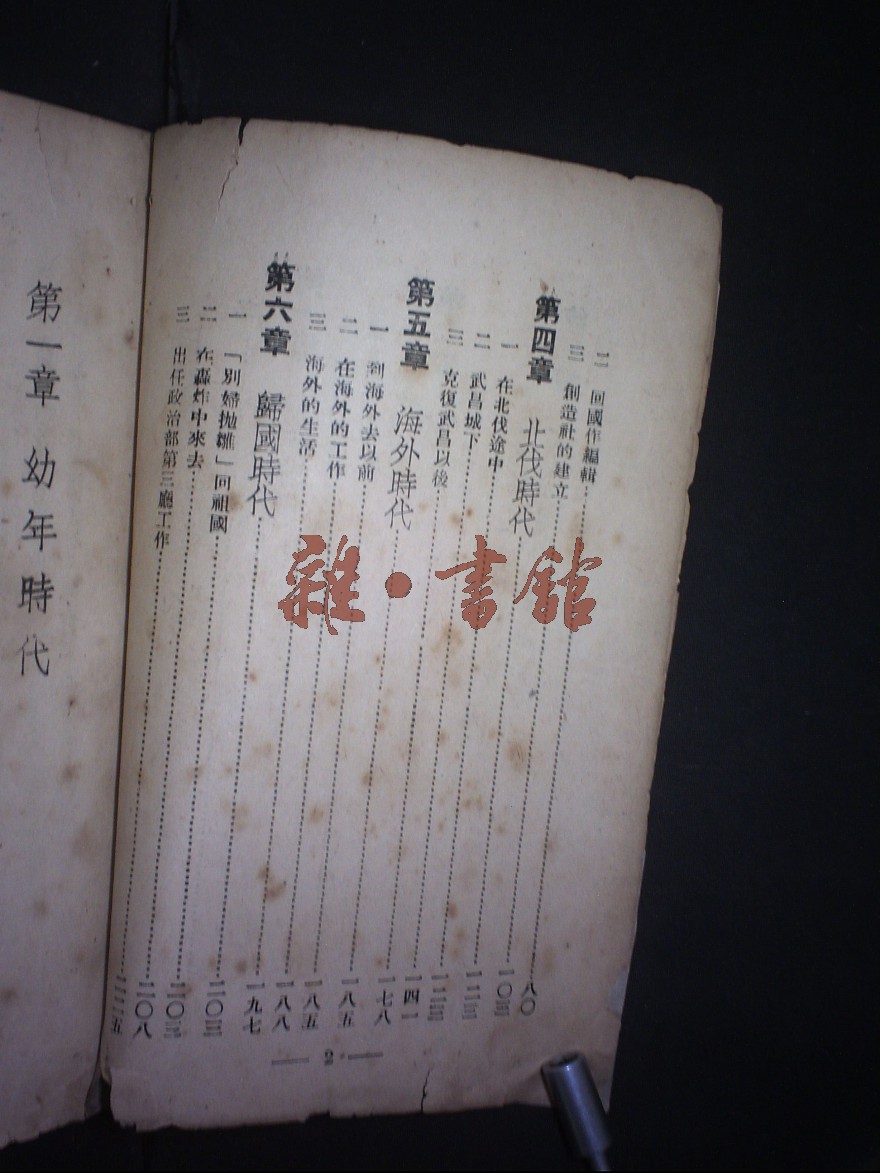 二 回國作編輯……八〇
三 創造社的建立……一〇三
第四章 北伐時代……一二三
一 在北伐途中……一二三
二 武昌城下……一四一
三 克復武昌以後……一七八
第五章 海外時代……一八五
一 到海外去以前……一八五
二 在海外的工作……一八八
三 海外的生活……一九七
第六章 歸國時代……二〇三
一 「別婦拋雛」回祖國……二〇三
二 在轟炸中來去……二〇八
三 出任政治部第三廳工作……二二五
— 2 —
第一章 幼年時代
雜·書館